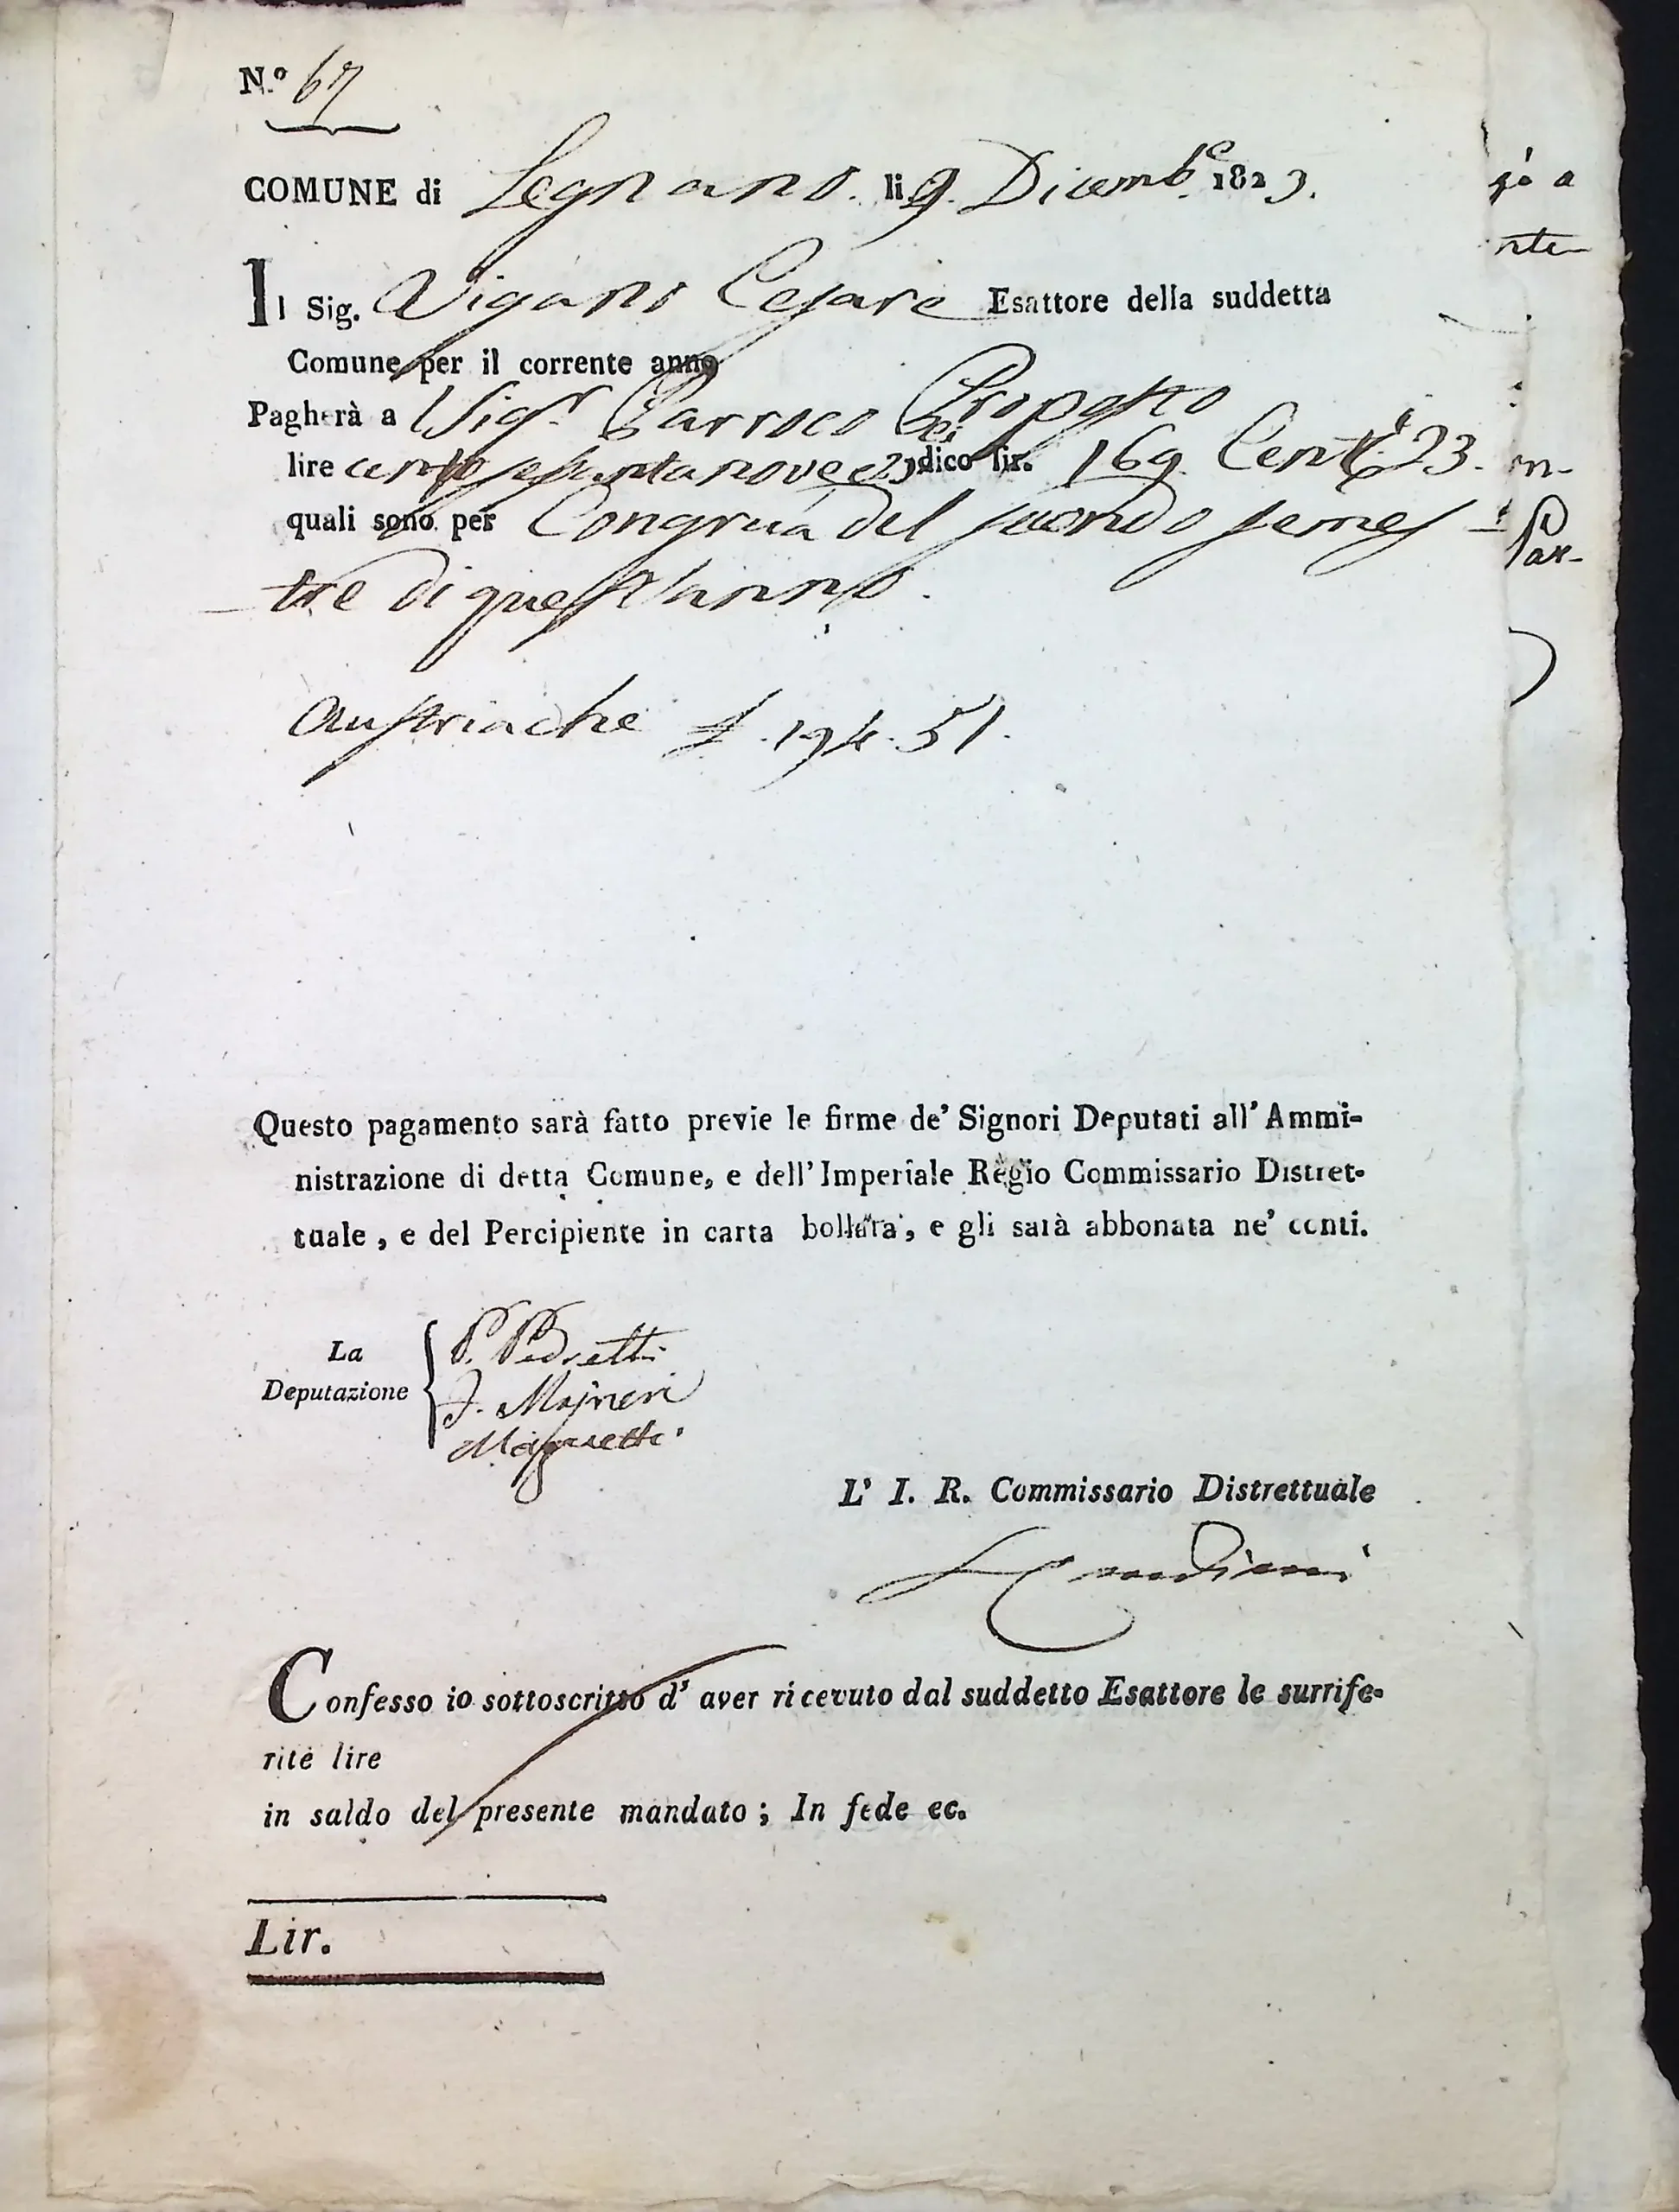 N.º 67
COMUNE di Legnano. li 9. Dicemb.e 1823.
Il Sig. Vigano Cesare Esattore della suddetta
Comune per il corrente anno
Pagherà a Sig.r Parroco Proposto
lire cento sessanta nove e 23 dico lir. 169. Cent.i 23.
quali sono per Congrua del secondo semes-
tre di quest'anno.
Austriache £. 194. 51.
Questo pagamento sarà fatto previe le firme de' Signori Deputati all' Ammi-
nistrazione di detta Comune, e dell' Imperiale Regio Commissario Distret-
tuale, e del Percipiente in carta bollata, e gli sarà abbonata ne' conti.
La
Deputazione
P. Pedretti
J. Majneri
L' I. R. Commissario Distrettuale
Confesso io sottoscritto d' aver ricevuto dal suddetto Esattore le surrife-
rite lire
in saldo del presente mandato; In fede ec.
Lir.